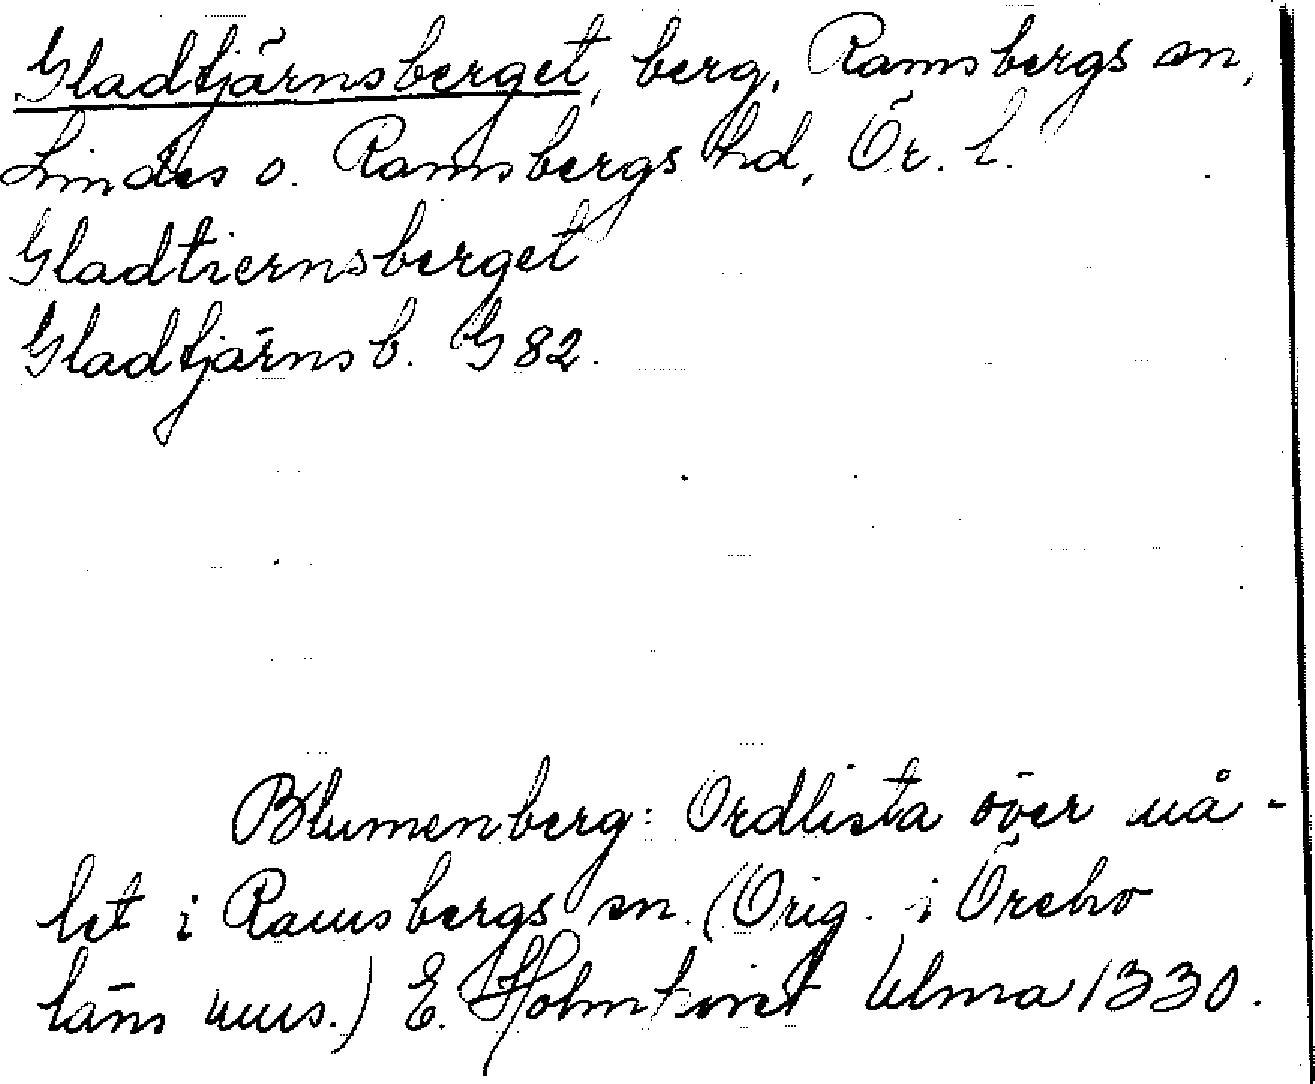 Gladtjärnsberget, berg, Ramsbergs sn,
Lindes o. Ramsbergs hd, Ör. l.
Gladtiernsberget
Gladtjärnsb. G 82.
Blumenberg: Ordlista över må-
let i Ramsbergs sn. (Orig. i Örebro
läns mus.) E. Holmkvist Ulma 1330.